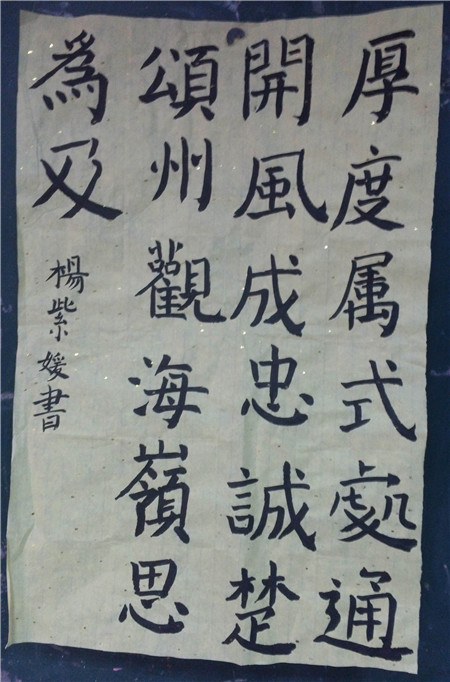 厚度属式處通
開風成忠誠楚
頌州觀海嶺思
為及
楊紫媛書